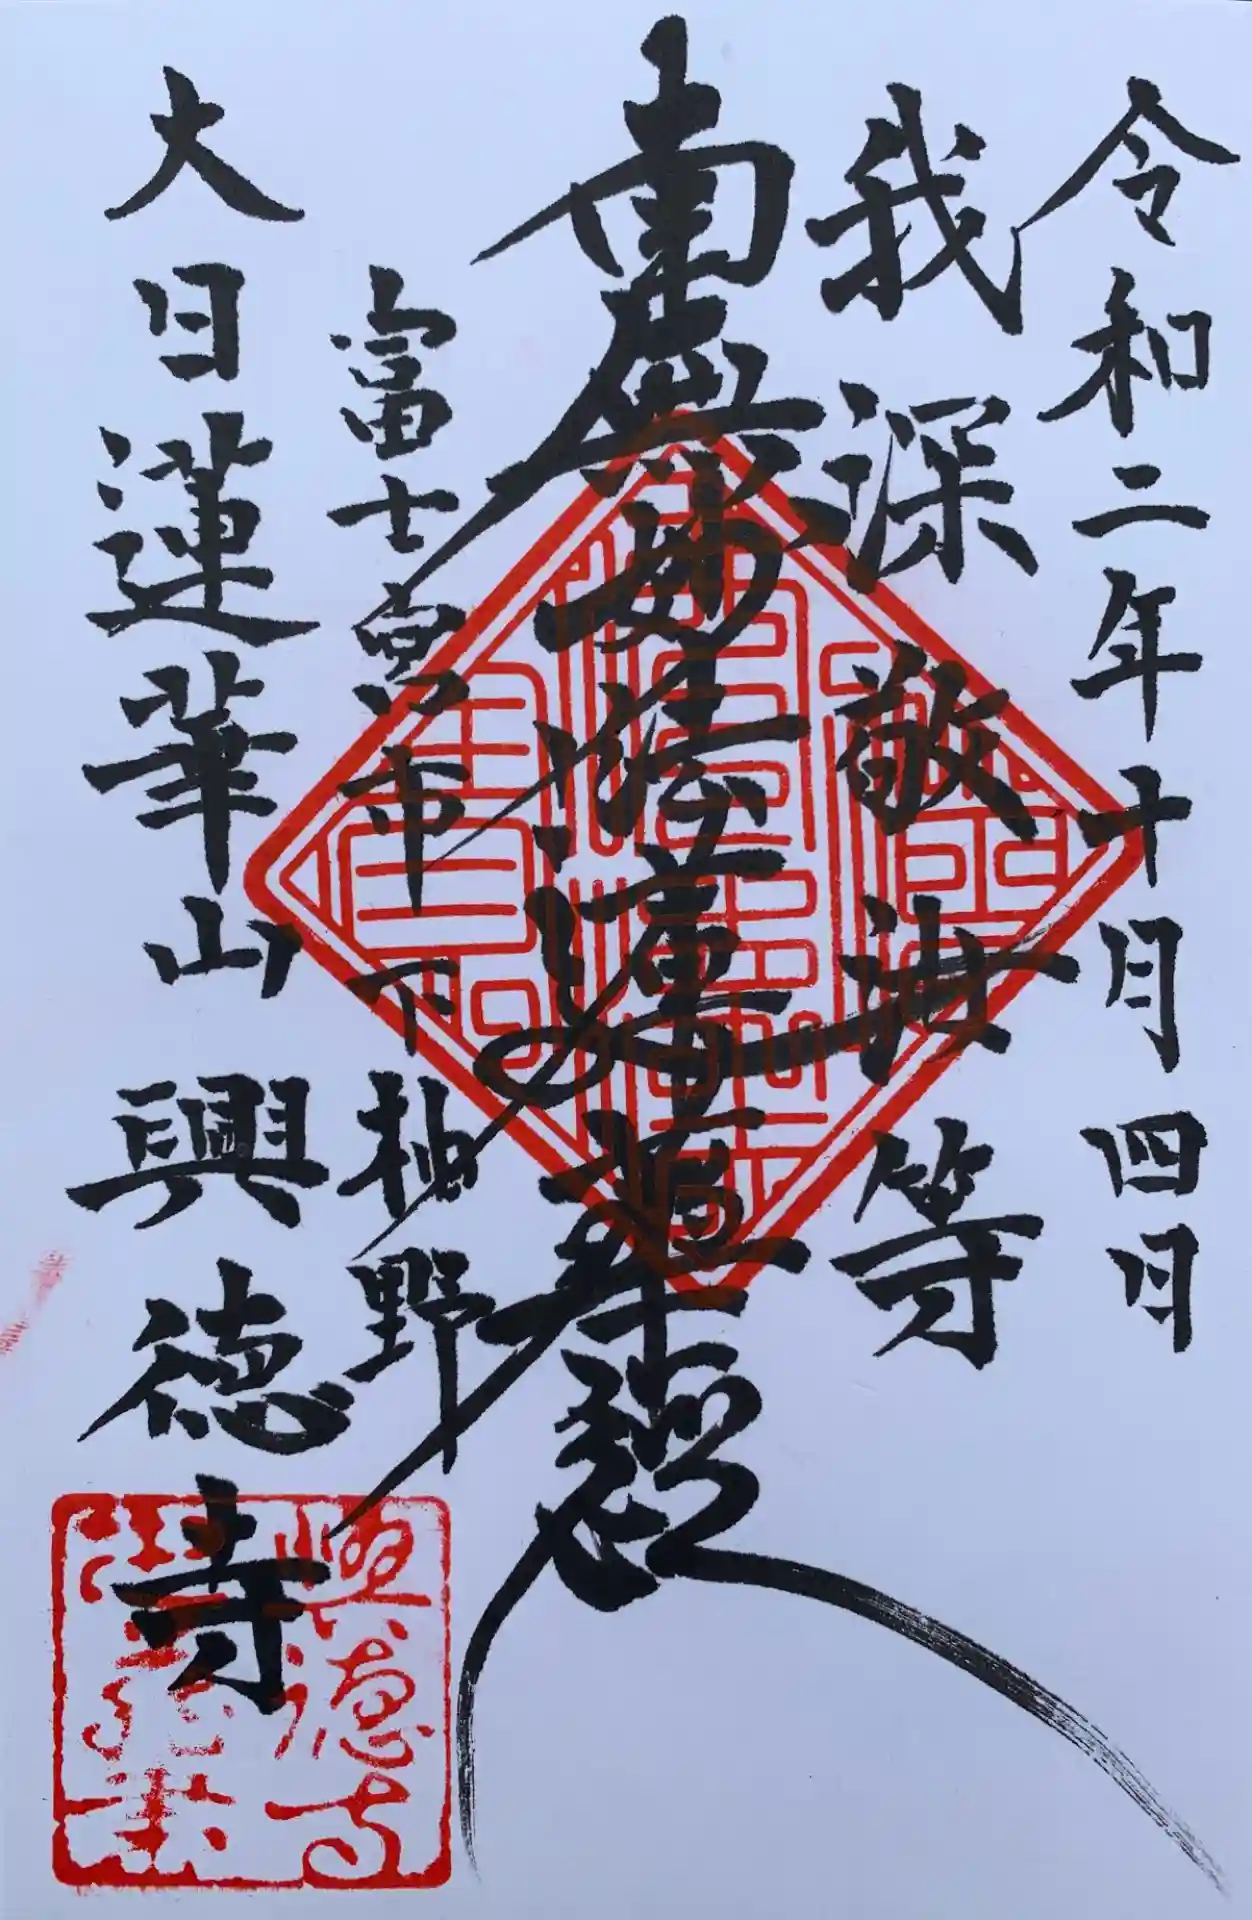 令和二年十月四日
我深敬汝等
南無妙法蓮華經
富士宮市下柚野
大日蓮華山興徳寺
興徳寺